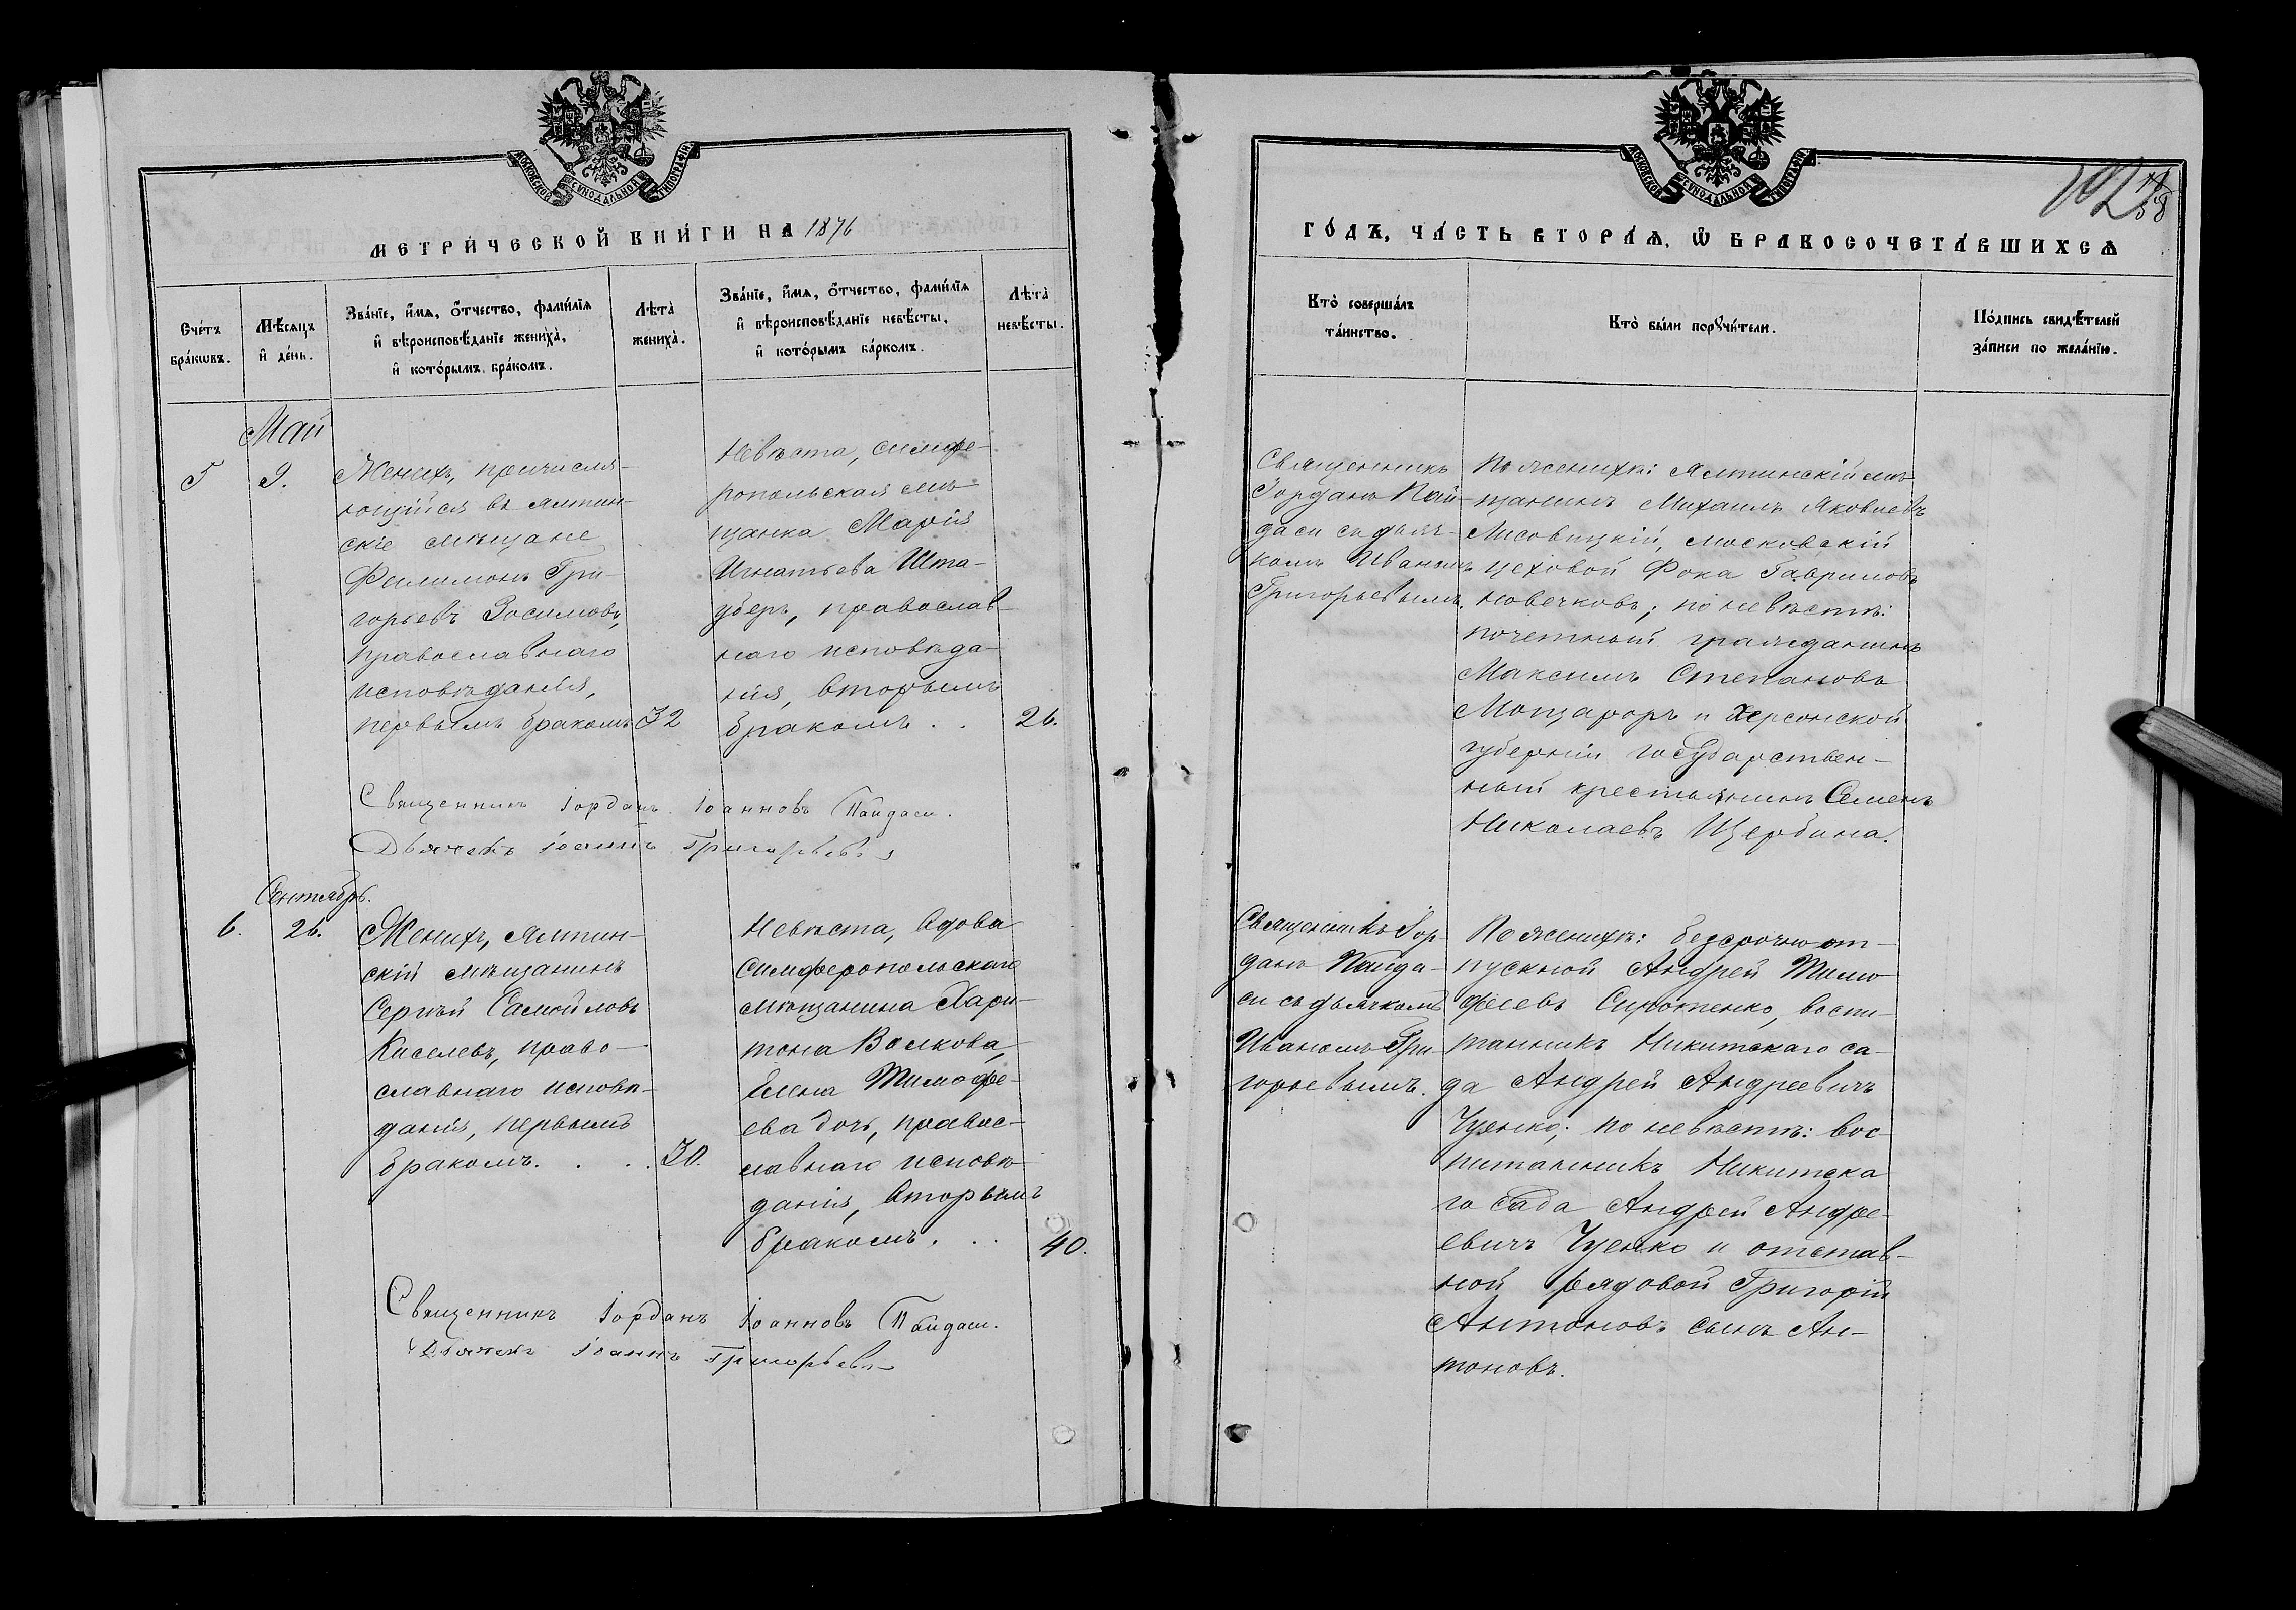 МОСКОВСКОЙ СѴНОДАЛЬНОЙ ТИПОГРАФІИ
МЕТРИ́ЧЕСКОЙ КНИ́ГИ НА 1876
Сче́тъ
бра́кѡвъ.
Мѣ́сяцъ
и҆ де́нь.
Зва́нїе, и҆́мѧ, ѻ҆́тчество, фами́лїѧ
и҆ вѣроисповѣ́данїе жениха̀,
и҆ кото́рымъ бра́комъ.
Лѣта̀
жениха̀.
Зва́нїе, и҆́мѧ, ѻ҆́тчество, фами́лїѧ
и҆ вѣроисповѣ́данїе невѣ́сты,
и҆ кото́рымъ ба́ркомъ.
Лѣта̀
невѣ́сты.
Май
5
9.
Женихъ, причисля-
ющійся въ ялтин-
скіе мѣщане
Филимонъ Гри-
горьевъ Зосимовъ,
православнаго
исповѣданія,
первымъ бракомъ
32
Невѣста, симфе-
ропольская мѣ-
щанка Марія
Игнатьева Шта-
уберъ, православ-
наго исповѣда-
нія, вторымъ
бракомъ . .
26.
Священникъ Іорданъ Іоанновъ Пайдаси.
Дьячекъ Іоаннъ Григорьевъ
Сентябрь.
6.
26.
Женихъ, ялтин-
скій мѣщанинъ
Сергѣй Самойловъ
Киселевъ, право-
славнаго исповѣ-
данія, первымъ
бракомъ. . . .
30.
Невѣста, вдова
симферопольскаго
мѣщанина Хари-
тона Волкова,
Елена Тимофе-
ева дочь, правос-
лавнаго исповѣ-
данія, вторымъ
бракомъ. . .
40.
Священникъ Іорданъ Іоанновъ Пайдаси.
Дьячекъ Іоаннъ Григорьевъ
МОСКОВСКОЙ СѴНОДАЛЬНОЙ ТИПОГРАФІИ
102
58
ГО́ДЪ, ЧА́СТЬ ВТОРА́Ѧ, Ѡ҆ БРАКОСОЧЕТА́ВШИХСѦ
Кто̀ соверша́лъ
та́инство.
Кто̀ бы́ли порꙋчи́тели.
По́дпись свидѣ́телей
за́писи по жела́нїю.
Священникъ
Іорданъ Пай-
даси съ дьяч-
комъ Иваномъ
Григорьевымъ.
По женихѣ: Ялтинскій мѣ-
щанинъ Михаилъ Яковлевъ
Лисовицкій, московскій
цеховой Фока Гавриловъ
Новечковъ; по невѣстѣ:
почетный гражданинъ
Максимъ Степановъ
и Херсонской
губерніи государствен-
ный крестьянинъ Семенъ
Николаевъ Щербина.
Священникъ Іор-
данъ Пайда-
си съ дьячкомъ
Иваномъ Гри-
горьевымъ.
По женихѣ: безсрочно от-
пускной Андрей Тимо
феевъ Сиротенко, воспи-
танникъ Никитскаго са-
да Андрей Андреевичъ
Чуенко; по невѣстѣ: вос-
питанникъ Никитска
го Сада Андрей Андре-
евичъ Чуенко и отстав-
ной рядовой Григорій
Антоновъ сынъ Ан-
тоновъ.